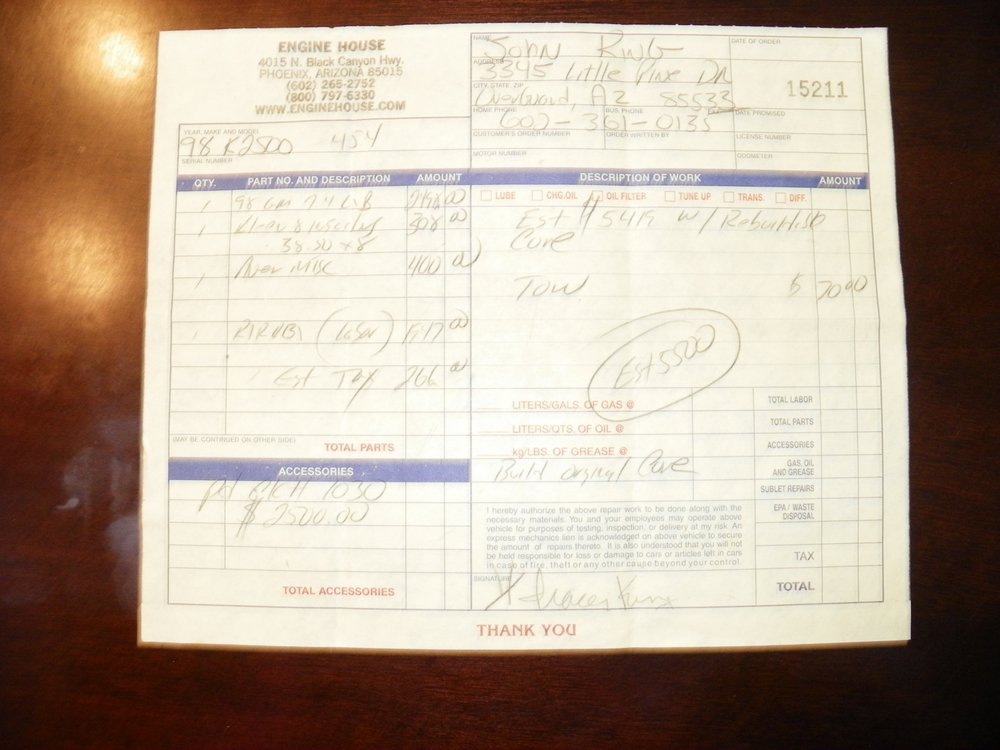 ENGINE HOUSE
4015 N. Black Canyon Hwy.
PHOENIX, ARIZONA 85015
(602) 265-2752
(800) 797-6330
WWW.ENGINEHOUSE.COM
NAME John King
DATE OF ORDER
ADDRESS 3345 Little Pine DR
15211
CITY, STATE, ZIP Overgaard, AZ 85533
HOME PHONE 602-361-0135
BUS. PHONE
DATE PROMISED
CUSTOMER'S ORDER NUMBER
ORDER WRITTEN BY
LICENSE NUMBER
MOTOR NUMBER
ODOMETER
YEAR, MAKE AND MODEL
98 K2500 454
SERIAL NUMBER
QTY. PART NO. AND DESCRIPTION AMOUNT
1 98 GM 7.4 00
1 8 308 00
38.50 x8
1 Misc 400 00
1 00
Est Tax 266 00
(MAY BE CONTINUED ON OTHER SIDE)
TOTAL PARTS
ACCESSORIES
pd 1030
$2500.00
TOTAL ACCESSORIES
DESCRIPTION OF WORK AMOUNT
LUBE CHG.OIL OIL FILTER TUNE UP TRANS. DIFF.
Est $5419 w/
Core
Tow $ 70 00
Est 5500
LITERS/GALS. OF GAS @
LITERS/QTS. OF OIL @
kg/LBS. OF GREASE @
Build original Core
TOTAL LABOR
TOTAL PARTS
ACCESSORIES
GAS, OIL AND GREASE
SUBLET REPAIRS
EPA / WASTE DISPOSAL
TAX
TOTAL
I hereby authorize the above repair work to be done along with the
necessary materials. You and your employees may operate above
vehicle for purposes of testing, inspection, or delivery at my risk. An
express mechanics lien is acknowledged on above vehicle to secure
the amount of repairs thereto. It is also understood that you will not
be held responsible for loss or damage to cars or articles left in cars
in case of fire, theft or any other cause beyond your control.
SIGNATURE X
THANK YOU